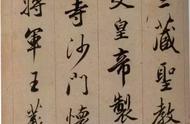 三藏聖教
文皇帝製
寺沙門懷
將軍王羲